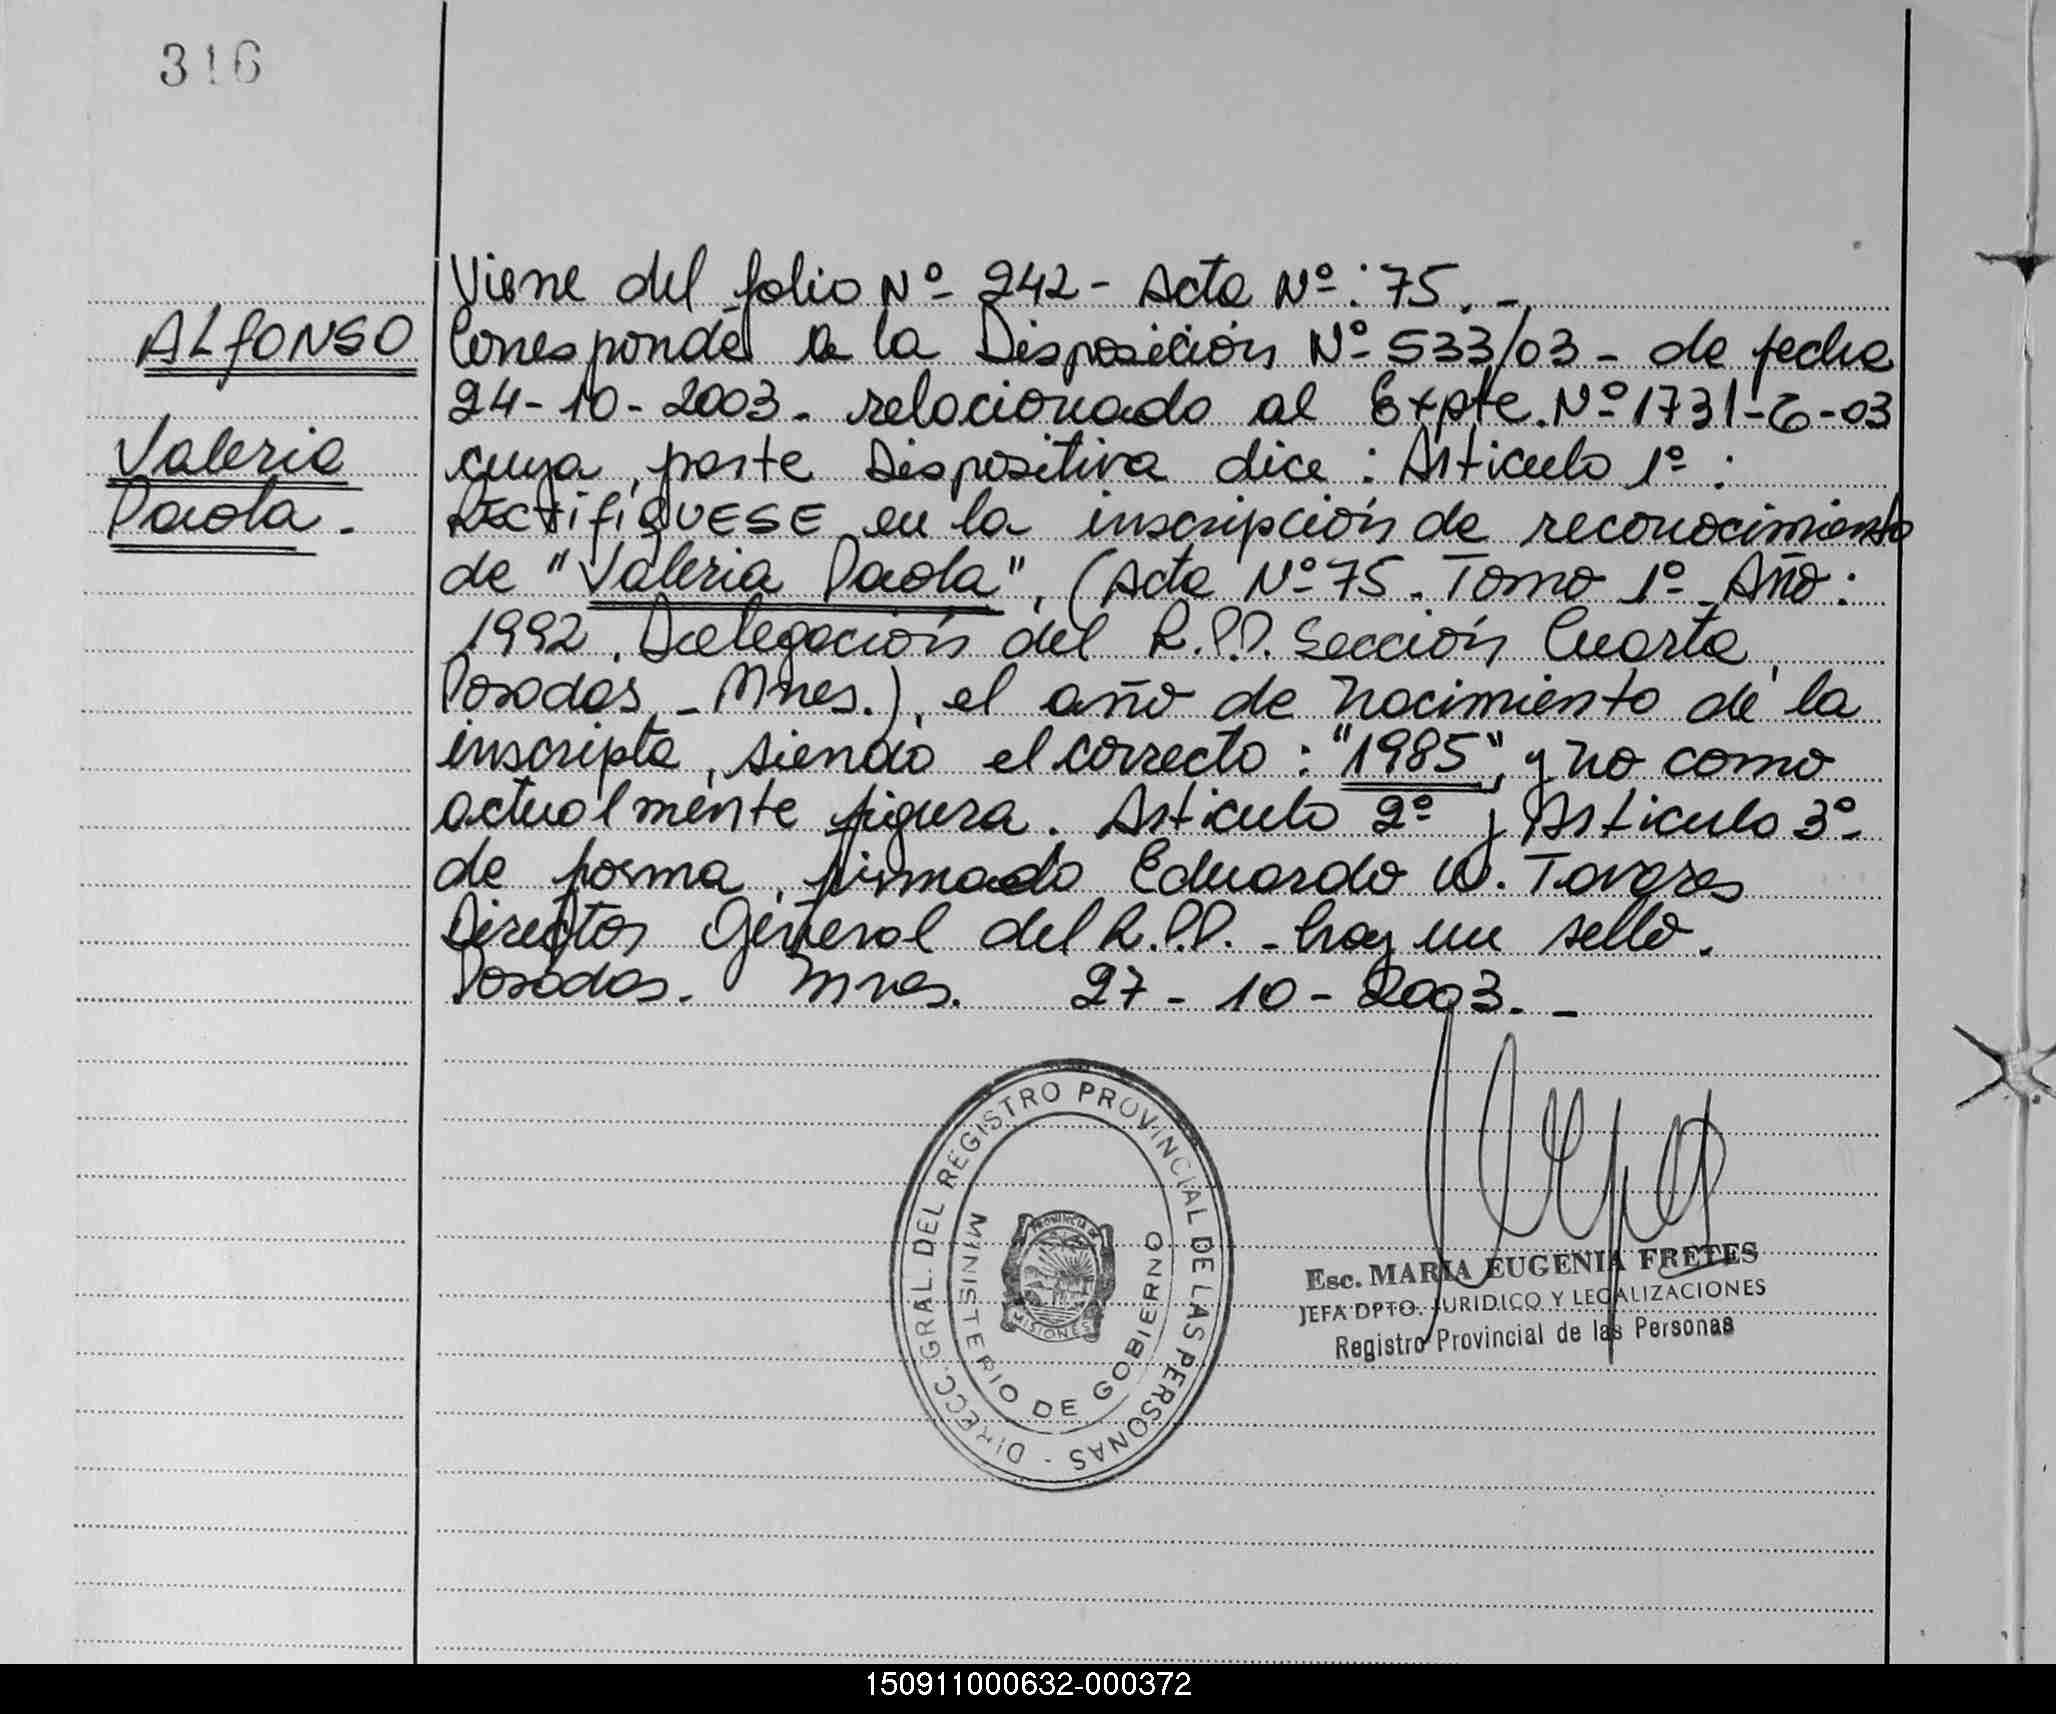 316
Viene del folio Nº 242 - Acta Nº: 75. -
ALFONSO
Corresponde a la Disposición Nº 533/03 - de fecha
24-10-2003. relacionado al Expte. Nº 1731-G-03
Valeria
cuya parte Dispositiva dice: Artículo 1º:
Paola.
RECTIFIQUESE en la inscripción de reconocimiento
de "Valeria Paola", (Acta Nº 75. Tomo 1º. Año:
1992. Delegación del R.P.P. Sección Cuarta,
Posadas - Mnes.), el año de nacimiento de la
inscripta, siendo el correcto: "1985", y no como
actualmente figura. Artículo 2º y Artículo 3º
de forma, firmado Eduardo W. Tavares
Director General del R.P.P. - hay un sello.
Posadas. Mnes. 27 - 10 - 2003. -
DIRECC. GRAL. DEL REGISTRO PROVINCIAL DE LAS PERSONAS -
MINISTERIO DE GOBIERNO
PROVINCIA DE
MISIONES
Esc. MARIA EUGENIA FRETES
JEFA DPTO. JURIDICO Y LEGALIZACIONES
Registro Provincial de las Personas
150911000632-000372